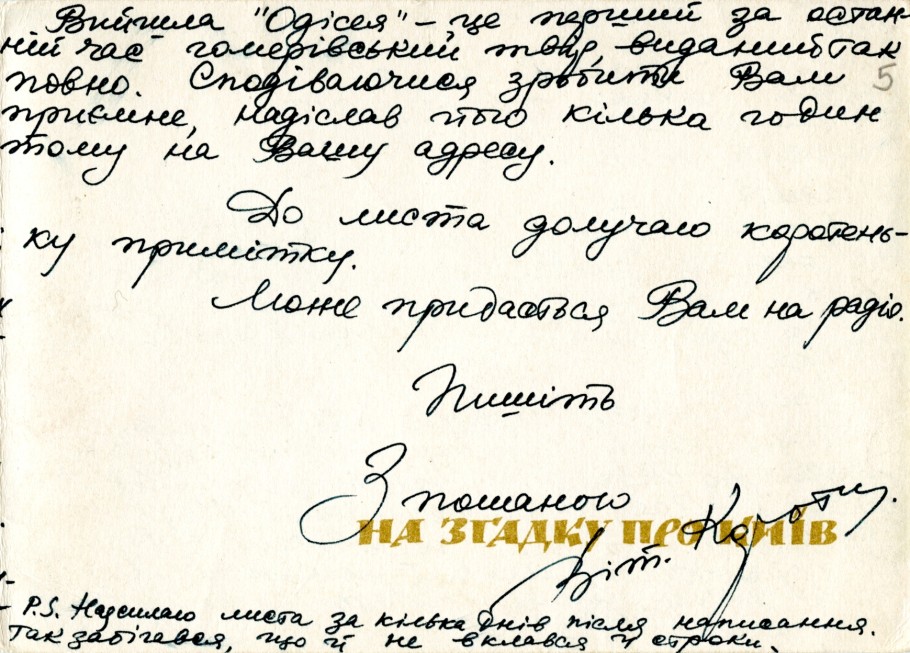 Вийшла "Одісея" – це перший за остан-
ній час гомерівський твір, виданий так
повно. Сподіваючися зробити Вам
5
приємне, надіслав його кілька годин
тому на Вашу адресу.
До листа долучаю коротень-
ку примітку.
Може придасться Вам на радіо.
Пишіть
З пошаною
НА ЗГАДКУ ПРО КИЇВ
Віт. Коротич.
P.S. Надсилаю листа за кілька днів після написання.
Так забігався, що й не вклався у строки.